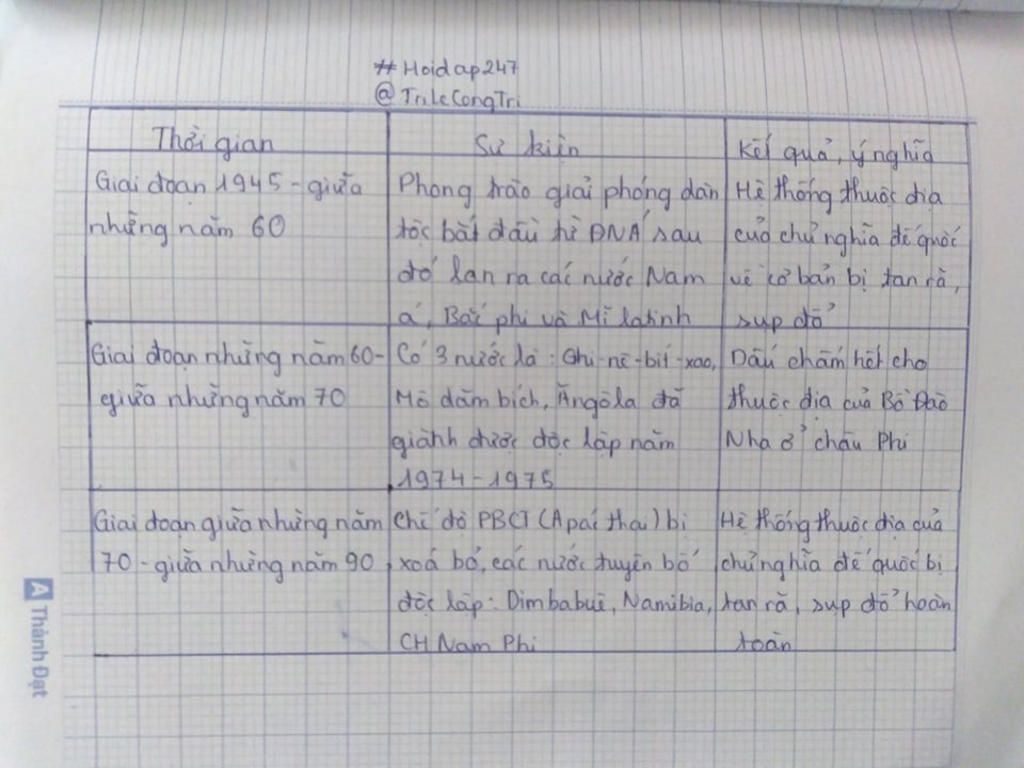 #Hoidap247
@TriLeCongTri
Thời gian
Sự kiện
Kết quả, ý nghĩa
Giai đoạn 1945 - giữa
những năm 60
Phong trào giải phóng dân
tộc bắt đầu từ ĐNA sau
đó lan ra các nước Nam
á, Bắc phi và Mĩ latinh
Hệ thống thuộc địa
của chủ nghĩa đế quốc
về cơ bản bị tan rã,
sụp đổ
Giai đoạn những năm 60-
giữa những năm 70
Có 3 nước là: Ghi-nê-bit-xao,
Mô dăm bích, Ăngôla đã
giành được độc lập năm
1974-1975
Dấu chấm hết cho
thuộc địa của Bồ Đào
Nha ở châu Phi
Giai đoạn giữa những năm
70 - giữa những năm 90
Chế độ PBCT (Apácthai) bị
xoá bỏ, các nước tuyên bố
độc lập: Dimbabuê, Namibia,
CH Nam Phi
Hệ thống thuộc địa của
chủ nghĩa đế quốc bị
tan rã, sụp đổ hoàn
toàn
A Thành Đạt